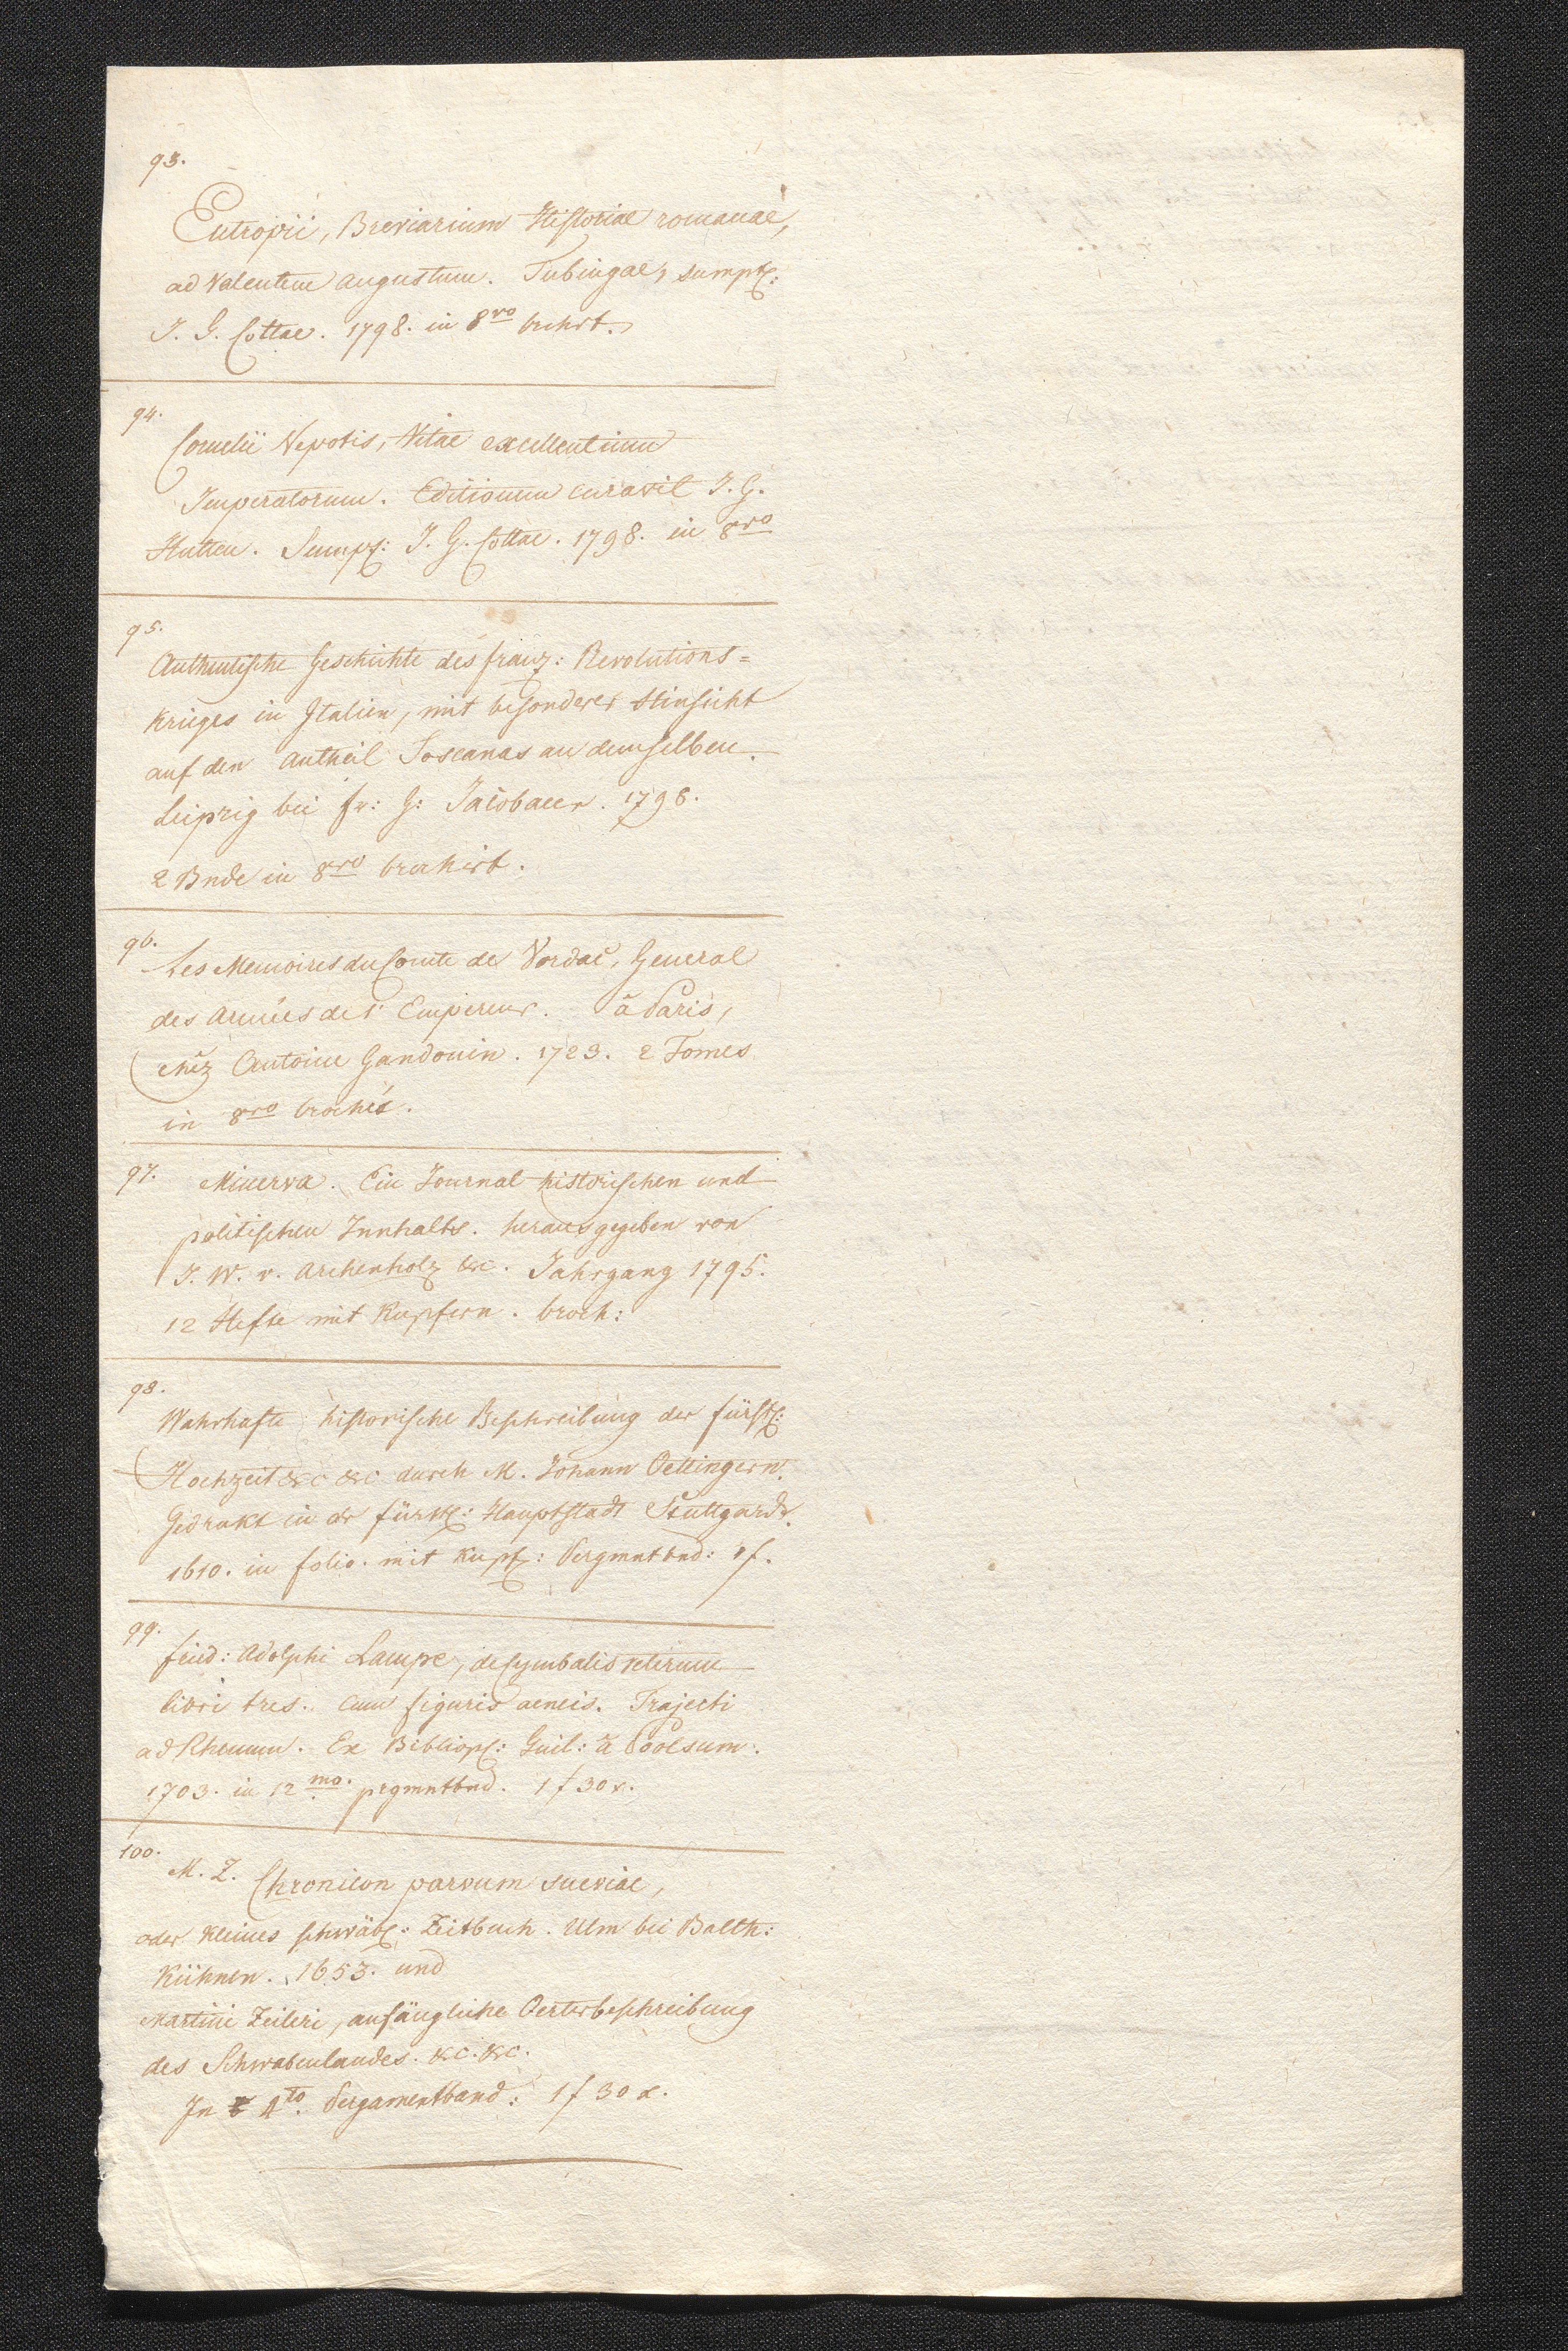 93.
Eutropii, Breviarium Historiae romanae,
ad Valentem Augustum. Tubingae, sumpt:
J. G. Cottae. 1798. in 8vo
94.
Cornelii Nepotis, Vitae excellentium
Imperatorum. Editionem curavit J. G.
Hutten. Sumpt: J. G. Cottae. 1798. in 8vo
95.
Authentische Geschichte des franz: Revolutions=
krieges in Italien, mit besonderer Hinsicht
auf den Antheil Toscanas an demselben.
Leipzig bei Fr: G: Jacobaeer. 1798.
2 Bnde in 8vo brochirt.
96.
Les Memoires du Comte de Vordac, General
des Armées de l'Empereur. à Paris,
chéz Antoine Gandouin. 1723. 2 Tomes
in 8vo brochés.
97.
Minerva. Ein Journal historischen und
politischen Innhalts. herausgegeben von
J. W. v. Archenholz &c. Jahrgang 1795.
12 Hefte mit Kupfern. broch:
98.
Wahrhafte historische Beschreibung der fürstl:
Hochzeit &c &c durch M. Johann Oettingern.
Gedrukt in der fürstl: Hauptstadt Stuttgardt.
1610. in folio. mit Kupf: Pergmntbnd: 1 f.
99.
Fried: Adolphi Lampe, de Cymbalis veterum
libri tres. cum figuris aeneis. Trajecti
ad Rhenum. Ex Bibliop: Guil: à Poolsum.
1703. in 12mo. prgmntbnd. 1 f 30 x.
100.
M. Z. Chronicon parvum Sueviae,
oder kleines schwäb: Zeitbuch. Ulm bei Balth:
Kühnen. 1653. und
Martini Zeileri, anfängliche Oerterbeschreibung
des Schwabenlandes. &c. &c.
In 4to. Pergamentband: 1 f 30 x.